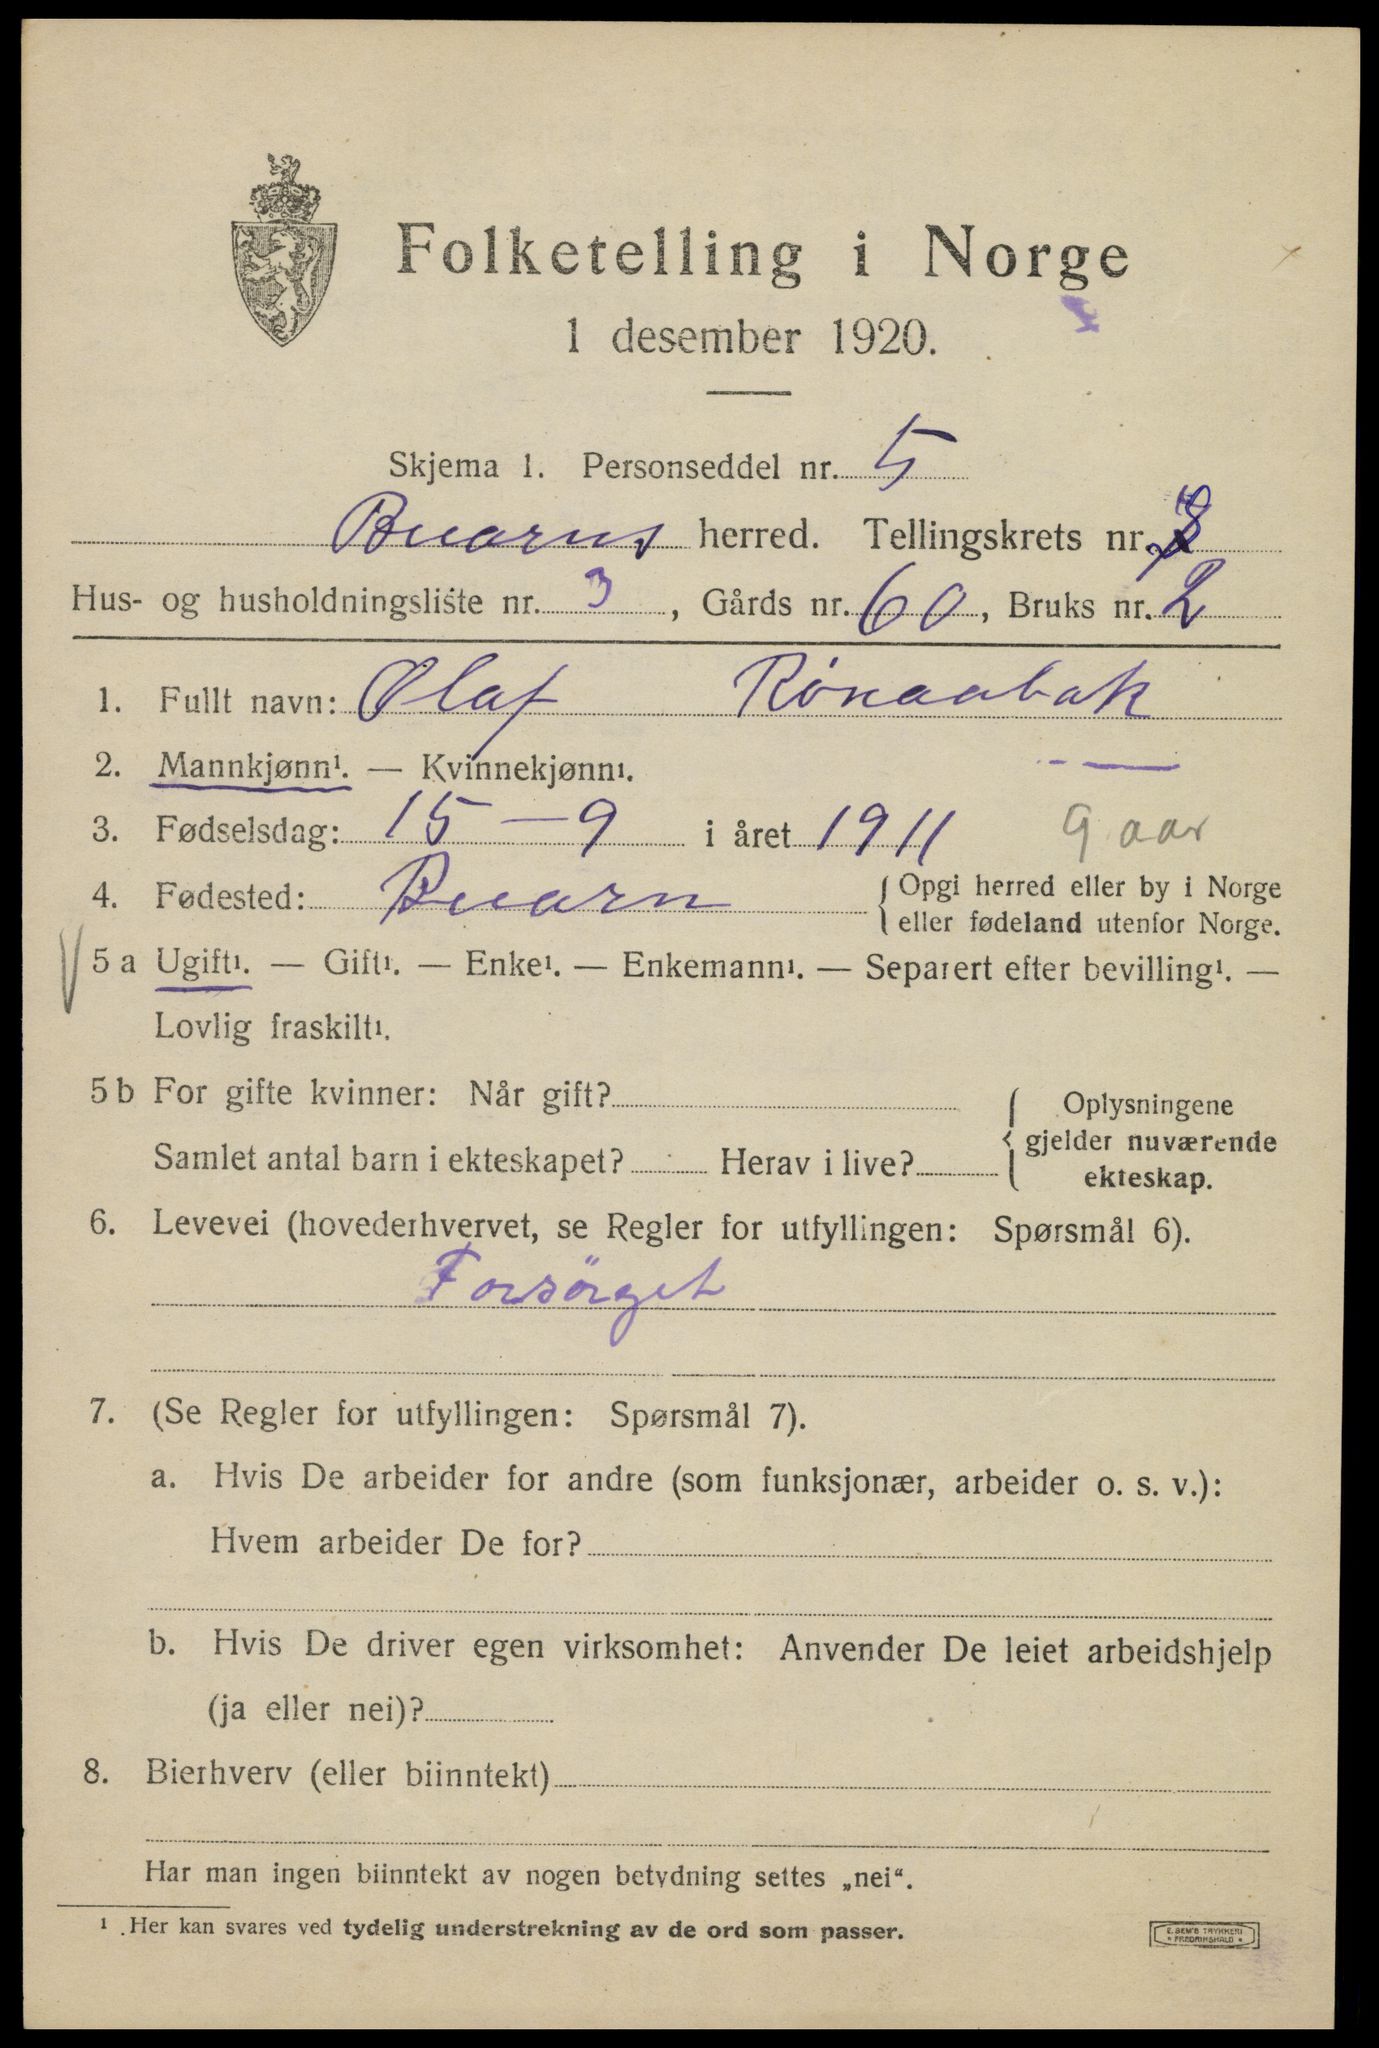 Folketelling i Norge
1 desember 1920.
Skjema 1. Personseddel nr. 5
Buarns herred. Tellingskrets nr.
Hus- og husholdningsliste nr. 3, Gårds nr. 60, Bruks nr. 2
1. Fullt navn: Olaf Rönaabak
2. Mannkjønn¹. — Kvinnekjønn¹.
3. Fødselsdag: 15 – 9 i året 1911 9 aar
4. Fødested: Buarn {Opgi herred eller by i Norge
eller fødeland utenfor Norge.
5 a Ugift¹. — Gift¹. — Enke¹. — Enkemann¹. — Separert efter bevilling¹. —
Lovlig fraskilt¹.
5 b For gifte kvinner: Når gift?
Samlet antal barn i ekteskapet? Herav i live?
{Oplysningene
gjelder nuværende
ekteskap.
6. Levevei (hovederhvervet, se Regler for utfyllingen: Spørsmål 6).
Forsörget
7. (Se Regler for utfyllingen: Spørsmål 7).
a. Hvis De arbeider for andre (som funksjonær, arbeider o. s. v.):
Hvem arbeider De for?
b. Hvis De driver egen virksomhet: Anvender De leiet arbeidshjelp
(ja eller nei)?
8. Bierhverv (eller biinntekt)
Har man ingen biinntekt av nogen betydning settes „nei“.
¹ Her kan svares ved tydelig understrekning av de ord som passer.
E. SEM'S TRYKKERI
FREDRIKSHALD